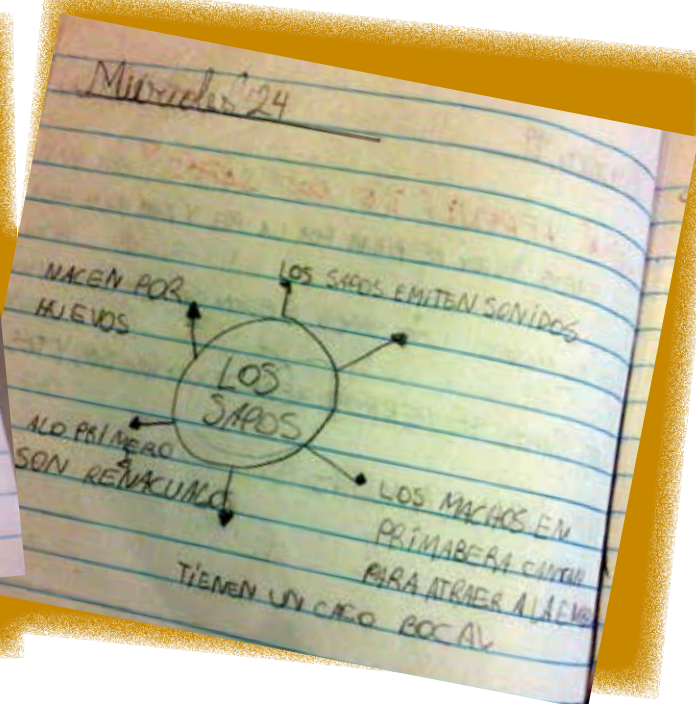 Miercoles 24
NACEN POR
HUEVOS
LOS SAPOS EMITEN SONIDOS
LOS
SAPOS
ALO PRIMERO
SON RENACUAGO
LOS MACHOS EN
PRIMABERA CANTAN
PARA ATRAER A LA
TIENEN UN CACO BOCAL